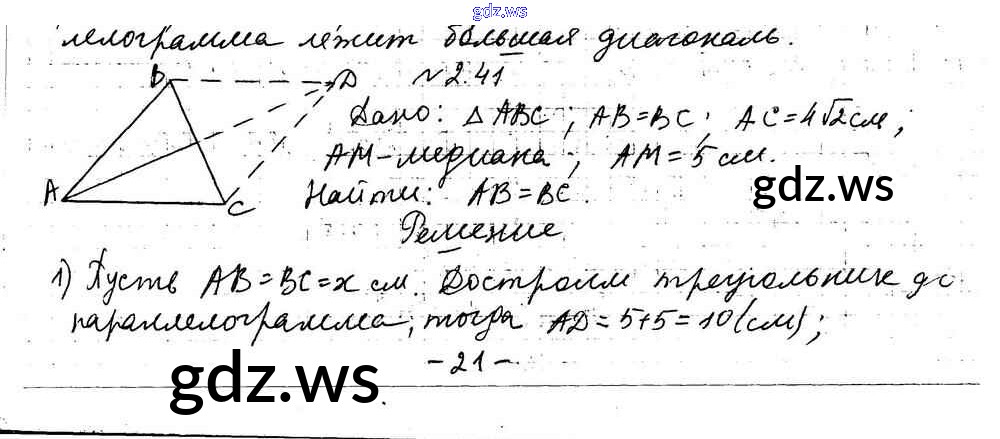 gdz.ws
лелограмма лежит большая диагональ.
B D №2.41
Дано: △ABC; AB=BC; AC=4√2см;
AM-медиана; AM=5см.
gdz.ws
A C Найти: AB=BC.
Решение.
1) Пусть AB=BC=x см. Достроим треугольник до
параллелограмма, тогда AD=5+5=10(см);
-21-
gdz.ws